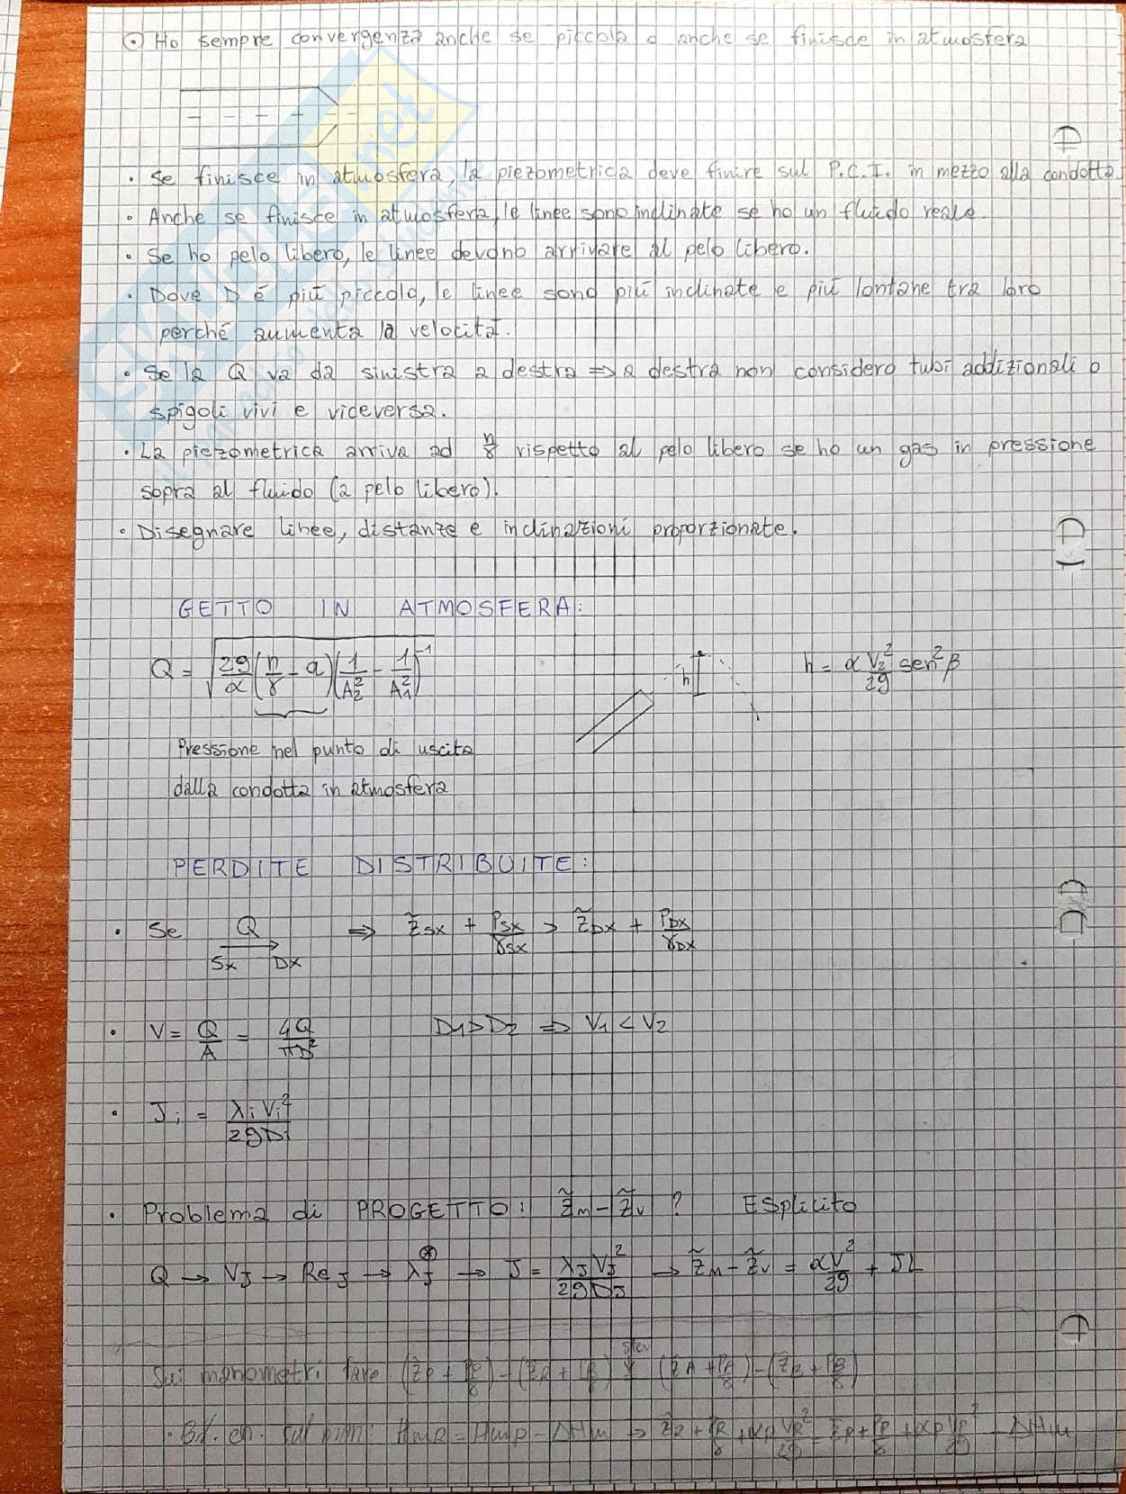 ⊙ Ho sempre convergenza anche se piccola o anche se finisce in atmosfera
• Se finisce in atmosfera, la piezometrica deve finire sul P.C.I. in mezzo alla condotta
• Anche se finisce in atmosfera, le linee sono inclinate se ho un fluido reale.
• Se ho pelo libero, le linee devono arrivare al pelo libero.
• Dove D è più piccolo, le linee sono più inclinate e più lontane tra loro
perché aumenta la velocità.
• Se la Q va da sinistra a destra ⇒ a destra non considero tubi addizionali o
spigoli vivi e viceversa.
• La piezometrica arriva ad n/γ rispetto al pelo libero se ho un gas in pressione
sopra al fluido (a pelo libero).
• Disegnare linee, distanze e inclinazioni proporzionate.
GETTO IN ATMOSFERA:
Q = √(2g/α (n/γ - a)(1/A₂² - 1/A₁²)⁻¹)
h
h = α V₂²/2g sen²β
Pressione nel punto di uscita
dalla condotta in atmosfera
PERDITE DISTRIBUITE:
• Se Q → Sx Dx ⇒ z̃sx + Psx/γsx > z̃Dx + PDx/γDx
• V = Q/A = 4Q/πD² D₁>D₂ ⇒ V₁ < V₂
• Ji = λi Vi²/2gDi
• Problema di PROGETTO: z̃m - z̃v ? Esplicito
Q → VJ → ReJ → λJ⊛ → J = λJ VJ²/2gDJ → z̃m - z̃v = αV²/2g + JL
Sui manometri fare